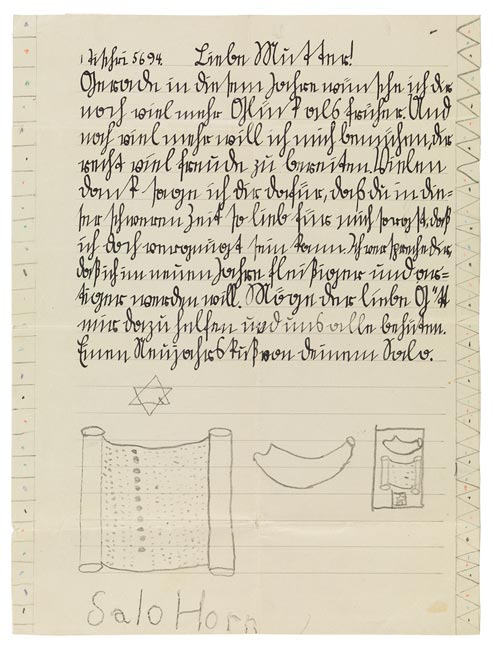 1 Tischri 5694. Liebe Mutter!
Gerade in diesem Jahre wünsche ich dir
noch viel mehr Glück als früher. Und
noch viel mehr will ich mich bemühen, dir
recht viel freude zu bereiten. Vielen
dank sage ich dir dafür, daß du in die-
ser schweren Zeit so lieb für mich sorgst, daß
ich doch vergnügt sein kann. Ich verspreche dir,
daß ich im neuen Jahre fleißiger und ar-
tiger werden will. Möge der liebe G"tt
mir dazu helfen und uns alle behüten.
Einen Neujahrskuß von deinem Salo.
Salo Horn